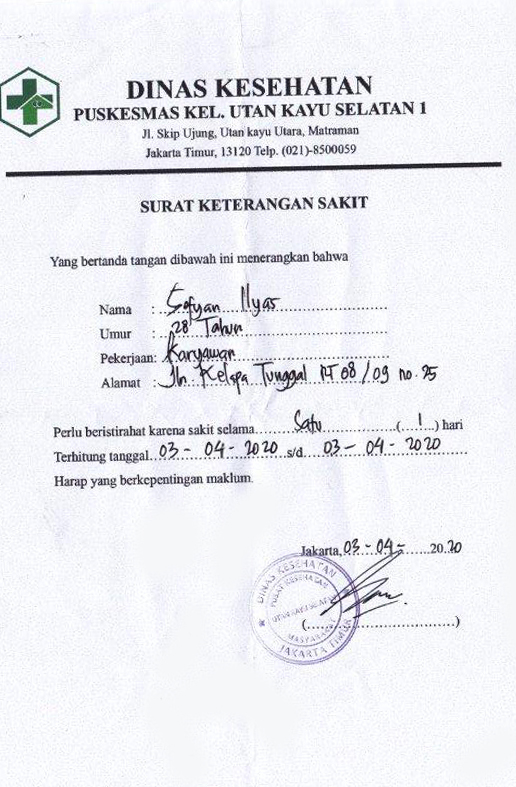 DINAS KESEHATAN
PUSKESMAS KEL. UTAN KAYU SELATAN 1
Jl. Skip Ujung, Utan kayu Utara, Matraman
Jakarta Timur, 13120 Telp. (021)-8500059
SURAT KETERANGAN SAKIT
Yang bertanda tangan dibawah ini menerangkan bahwa
Nama : Sofyan Ilyas
Umur : 28 Tahun
Pekerjaan: Karyawan
Alamat : Jln. Kelapa Tunggal RT 08 / 09 no. 25
Perlu beristirahat karena sakit selama Satu ( 1 ) hari
Terhitung tanggal 03 - 04 - 2020 s/d 03 - 04 - 2020
Harap yang berkepentingan maklum.
Jakarta, 03 - 04 - 2020
DINAS KESEHATAN
PUSAT KESEHATAN
UTAN KAYU SELATAN
MASYARAKAT
JAKARTA TIMUR
(..............................)